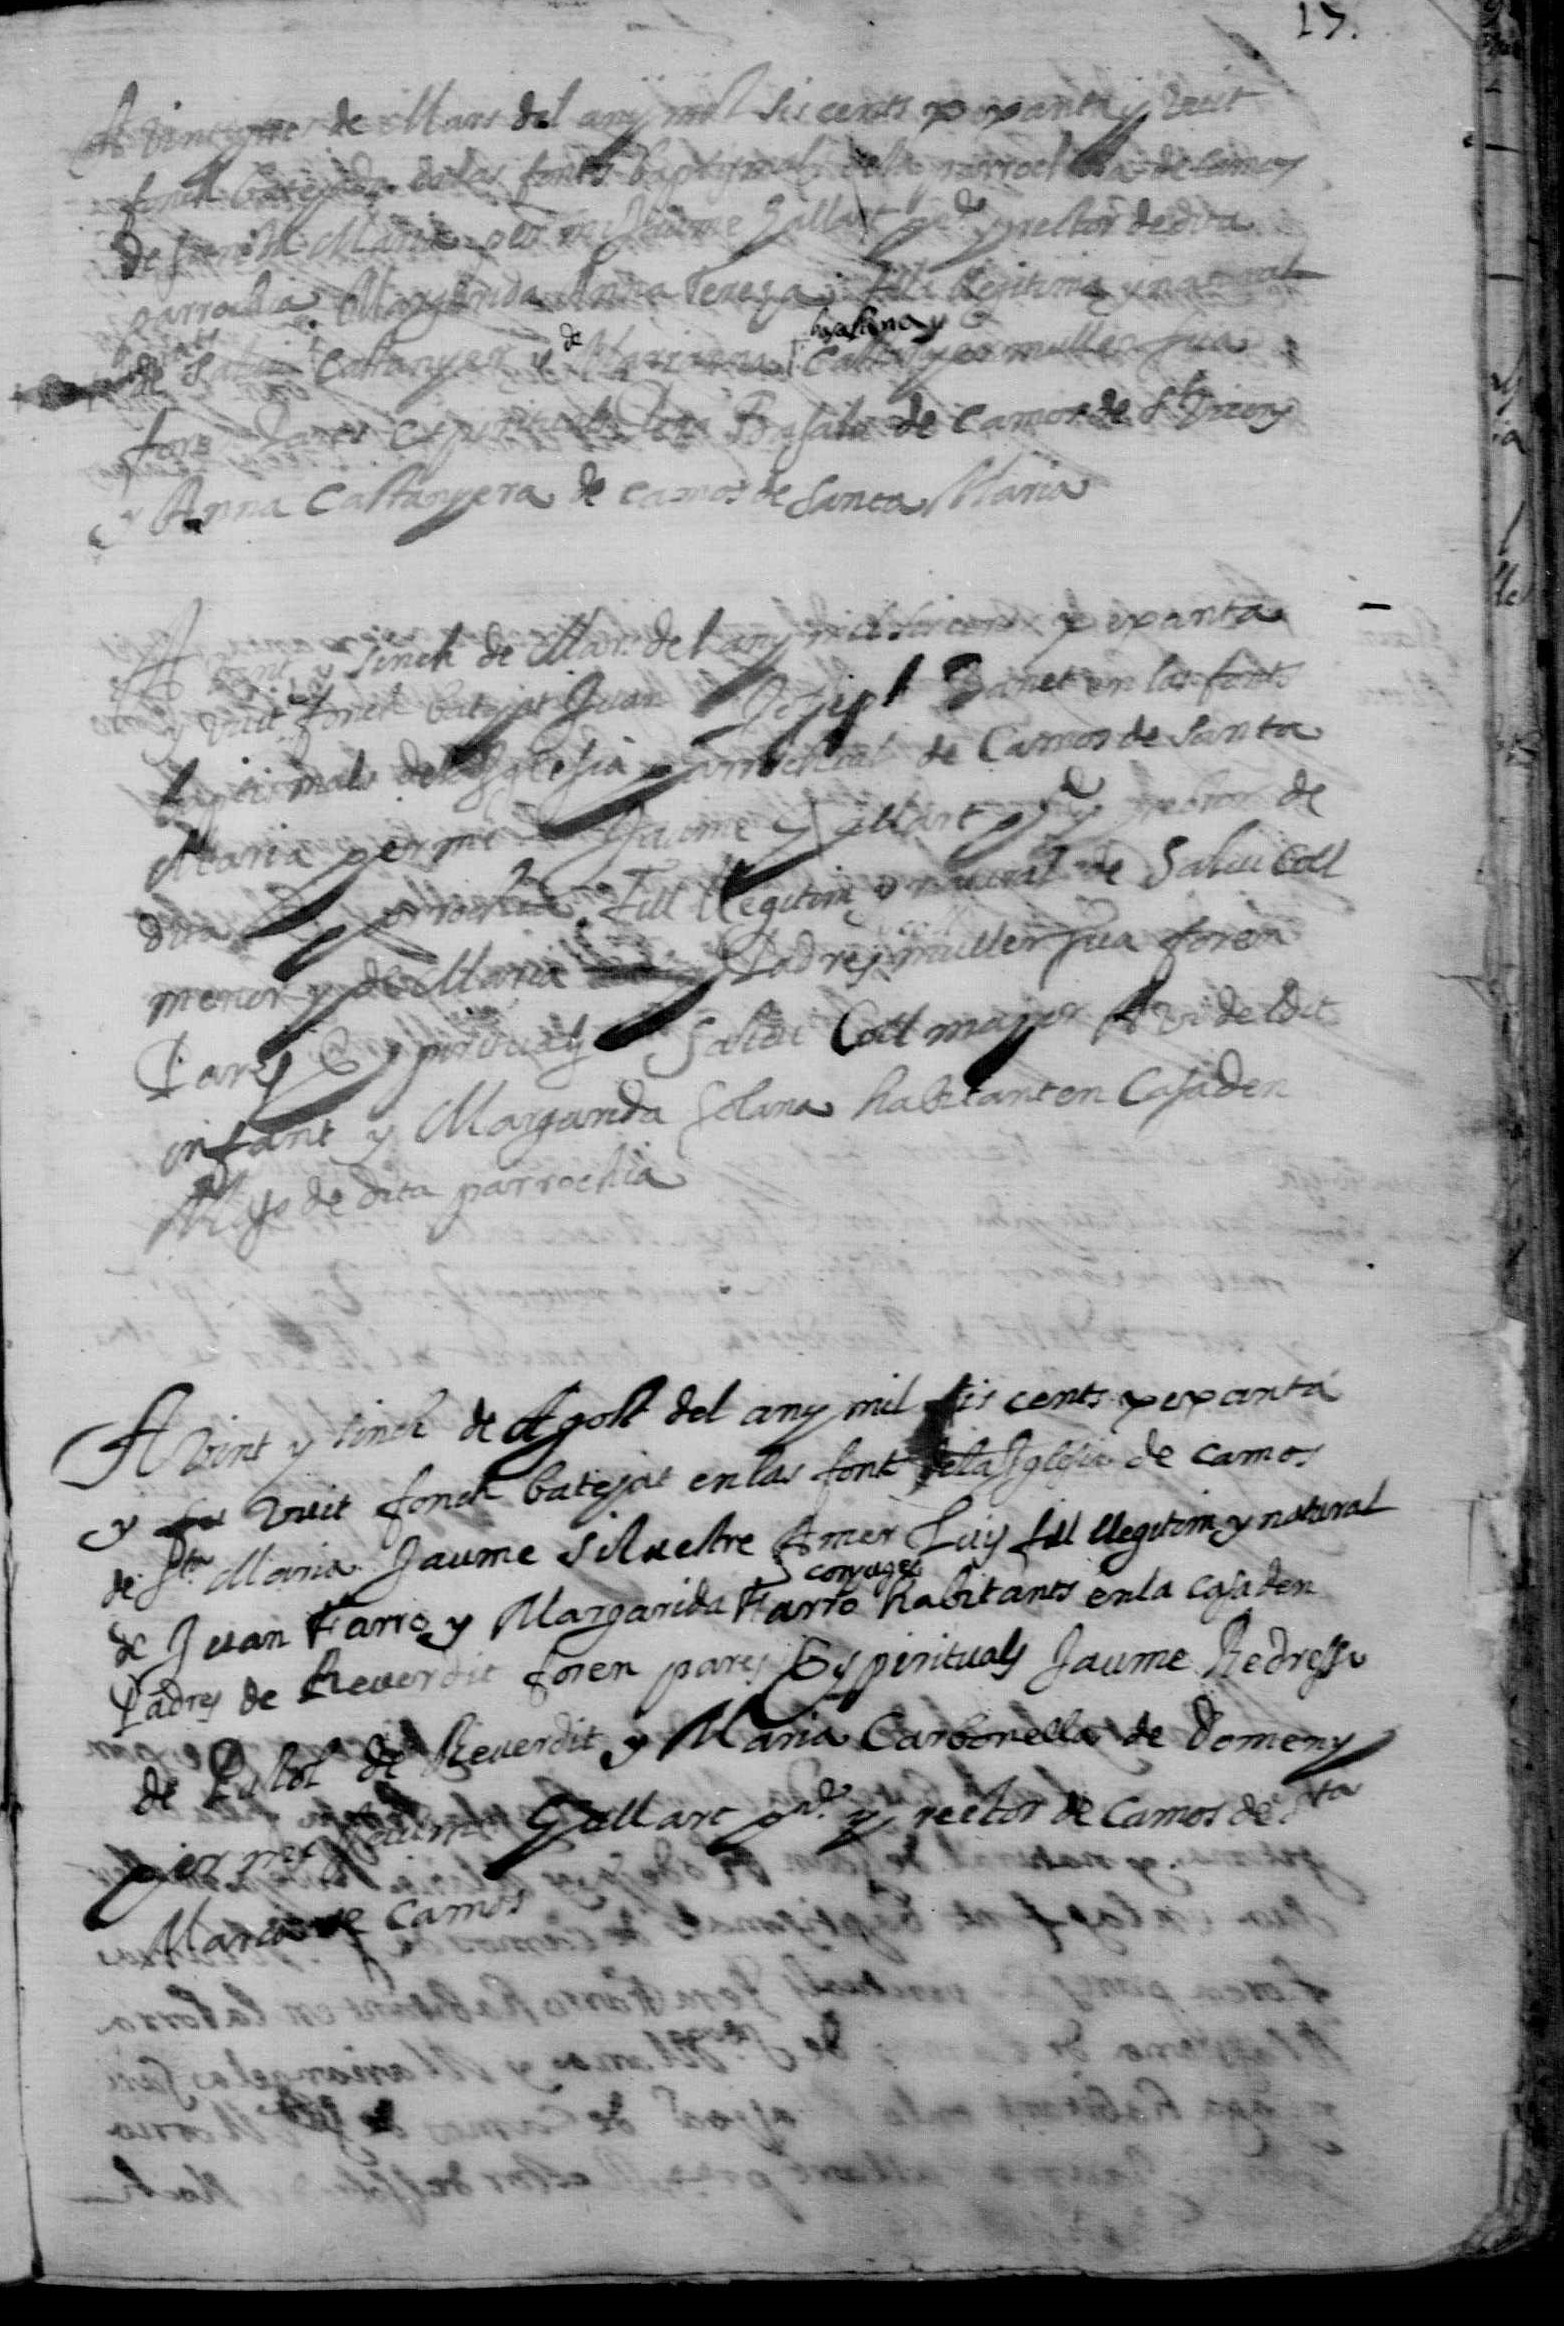 17.
A vint y tres de Mars del any mil sis cents xexanta y vuit
fonch batejada en las fonts baptismals de la parrochia de Camos
de Santa Maria per mi Jaume Gallart pre y rector de dita
parrochia Margarida Anna Teresa filla llegitima y natural
de Salui Castanyer y de Marianna Castanyer muller sua
foren Pares Espirituals Basals de Camos de St Vicens
y Anna Castanyera de Camos de Santa Maria
A vint y sinch de Mars del any mil sis cents xexanta
y vuit fonch batejat Juan Joseph Benet en las fonts
baptismals de la Iglesia parrochial de Camos de Santa
Maria per mi Jaume Gallart pre y rector de
dita parrochia fill llegitim y natural de Salui Coll
menor y de Maria Padres muller sua foren
Pares Espirituals Salui Coll major Avi del dit
infant y Margarida Solana habitant en Casa den
de dita parrochia
A vint y sinch de Agost del any mil sis cents xexanta
y vuit fonch batejat en las font de la Iglesia de Camos
de Sta Maria Jaume Silvestre Amer Luis fill llegitim y natural
de Juan Farro y Margarida Farro conjuges habitants en la casa den
Padres de Reverdit foren pares Espirituals Jaume Redressa
de Palol de Reverdit y Maria Carbonella de Domeny
per mi Jaume Gallart pre y rector de Camos de Sta
Maria de Camos